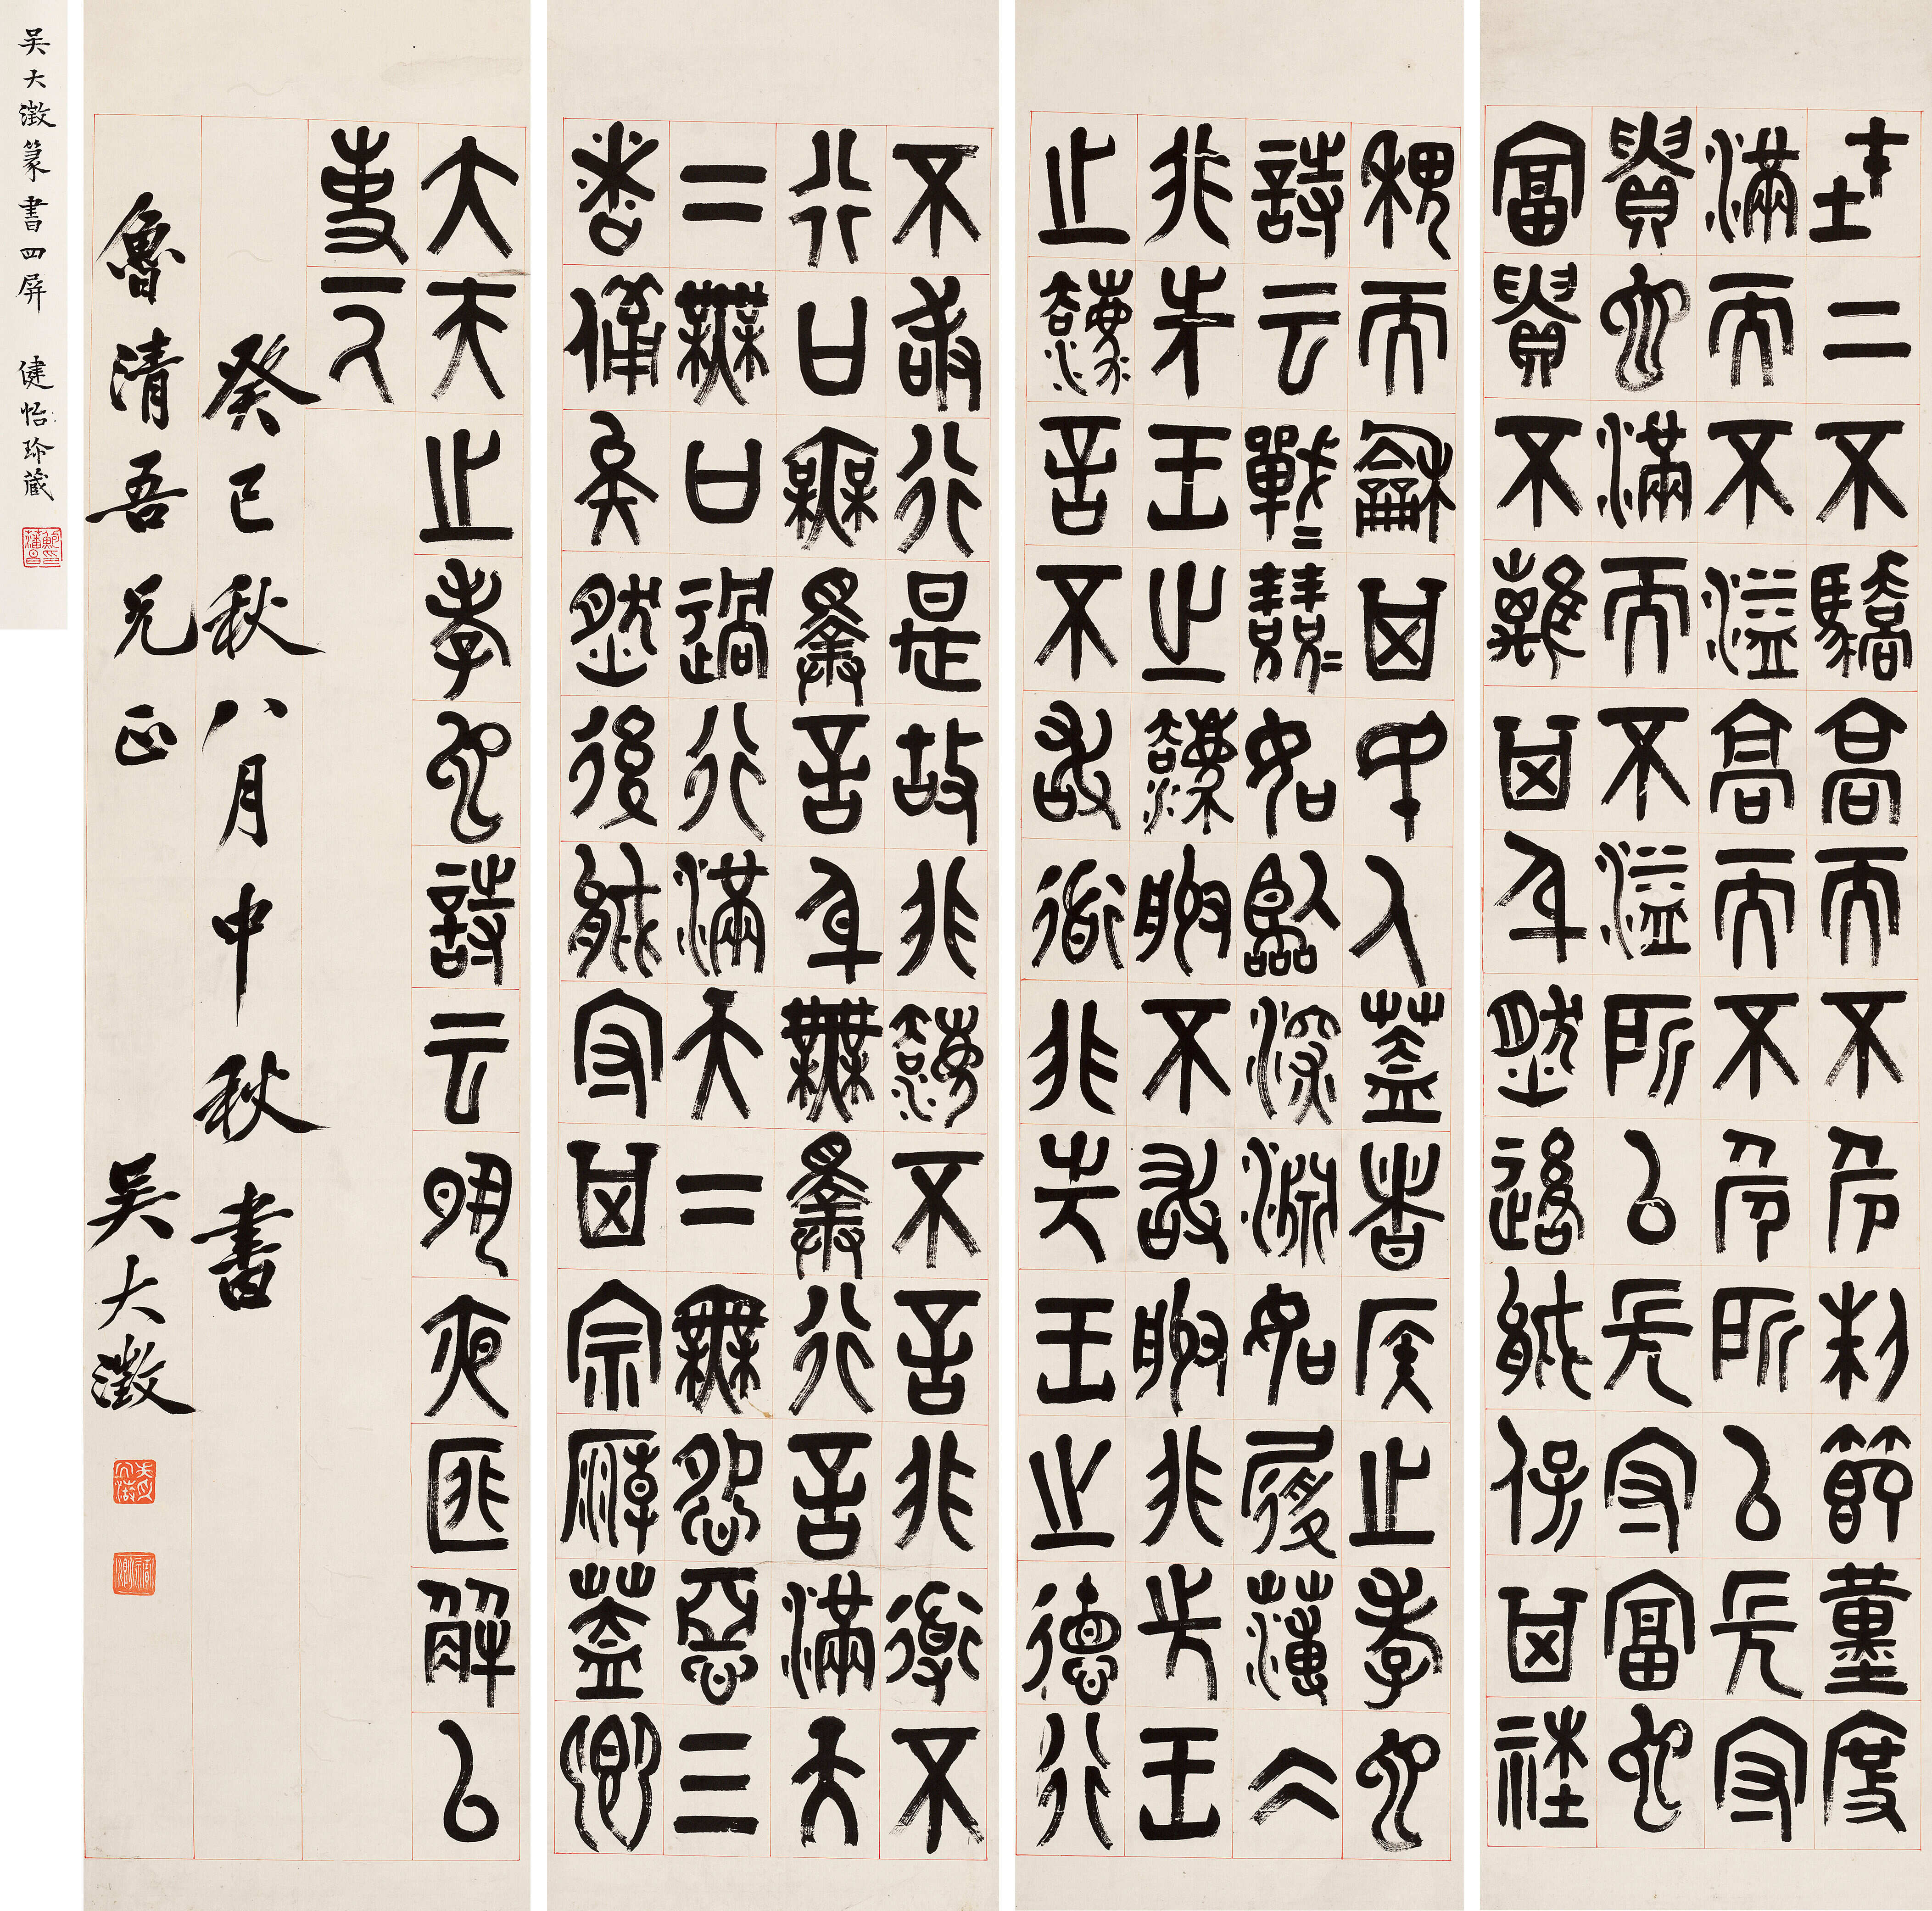 在上不驕高而不危制節謹度
滿而不溢高而不危所以長守
貴也滿而不溢所以長守富也
富貴不離其身然後能保其社
稷而龢其民人蓋者侯之孝也
詩云戰=兢=如臨深淵如履薄冰
非先王之灋服不敢服非先王
之灋言不敢道非先王之德行
不敢行是故非灋不言非道不
行口無擇言身無擇行言滿天
下無口過行滿天下無怨惡三
者備矣然後能守其宗廟蓋卿
大夫之孝也詩云夙夜匪解以
事一人
癸巳秋八月中秋書
魯清吾兄正 吳大澂
吳大澂篆書四屏 健怡珍藏